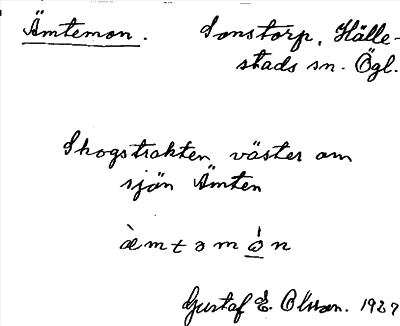 Ämtemon. Sonstorp, Hälle-
stads sn. Ögl.
Skogstrakten väster om
sjön Ämten
æ̀mtəmó̲n
Gustaf E. Olsson. 1927